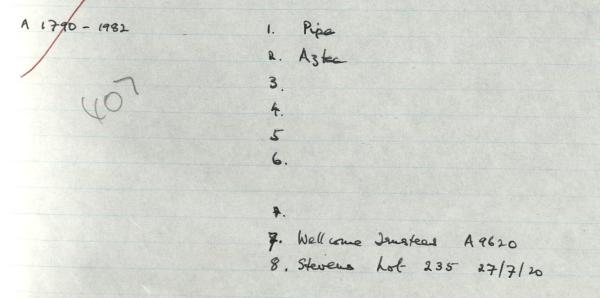 A 1790 - 1982
1. Pipe
2. Aztec
407
3.
4.
5
6.
7.
7. Wellcome Trustees A 9620
8. Stevens Lot 235 27/7/20